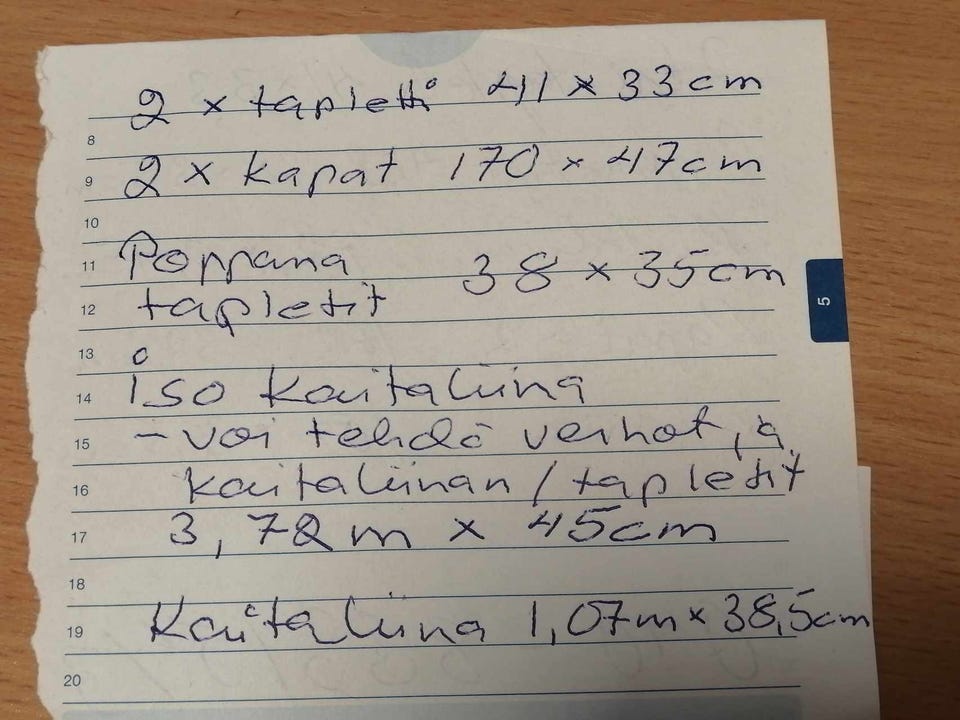 2 x tapletti 41 x 33 cm
8
2 x kapat 170 x 47cm
9
10
Poppana
11
38 x 35cm
tapletit
12
13
iso kaitaliina
14
- voi tehdä verhot, ä
15
kaitaliinan / tapletit
16
3,72 m x 45cm
17
18
Kaitaliina 1,07m x 38,5cm
19
20
5